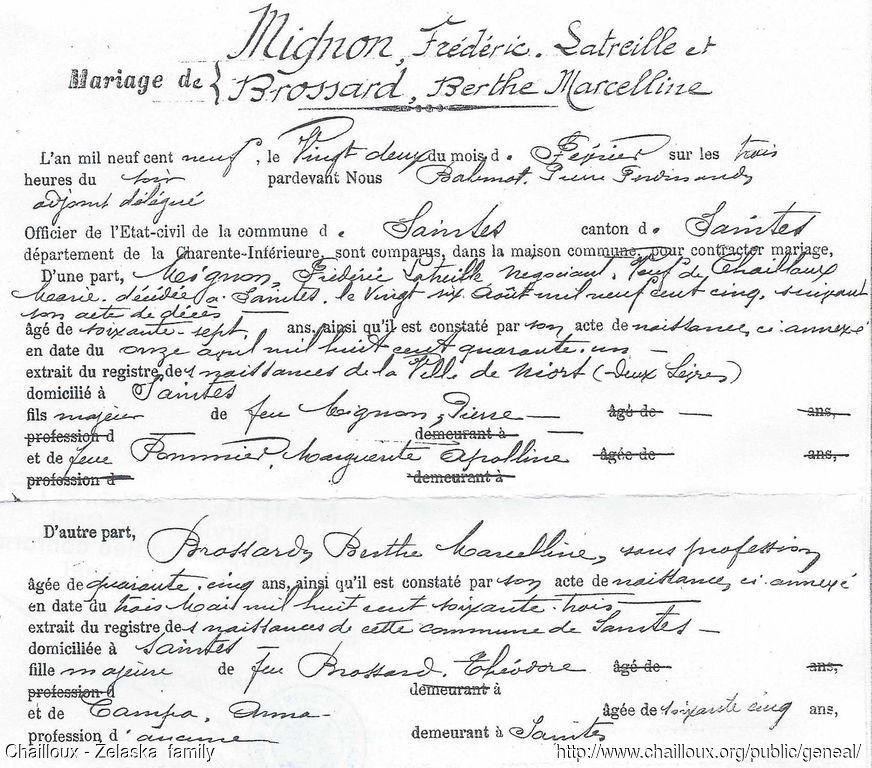 Mariage de { Mignon, Frédéric. Latreille et
Brossard, Berthe Marcelline
L'an mil neuf cent neuf, le Vingt deux du mois d. Février sur les trois
heures du soir pardevant Nous Pierre Ferdinand
adjoint délégué
Officier de l'Etat-civil de la commune d. Saintes canton d. Saintes
département de la Charente-Inférieure, sont comparus, dans la maison commune, pour contracter mariage,
D'une part, Mignon, Frédéric Latreille négociant, Veuf de Chailloux
Marie. décédée à Saintes. le Vingt six Août mil neuf cent cinq, suivant
son acte de décès —
âgé de soixante-sept. ans, ainsi qu'il est constaté par son acte de naissance, ci-annexé
en date du onze avril mil huit cent quarante-un —
extrait du registre des naissances de la Ville de Niort (Deux Sèvres)
domicilié à Saintes
fils majeur de feu Mignon, Pierre — âgé de — ans,
profession d demeurant à —
et de feue Pommier, Marguerite Apolline âgée de — ans,
profession d demeurant à
D'autre part, Brossard, Berthe Marcelline, sans profession
âgée de quarante-cinq ans, ainsi qu'il est constaté par son acte de naissance, ci-annexé
en date du trois Mai mil huit cent soixante-trois —
extrait du registre des naissances de cette commune de Saintes —
domiciliée à Saintes —
fille majeure de feu Brossard. Théodore âgé de ans,
profession d demeurant à
et de Campo, Anna- âgée de soixante cinq ans,
profession d'aucune demeurant à Saintes
Chailloux - Želaska family http://www.chailloux.org/public/geneal/